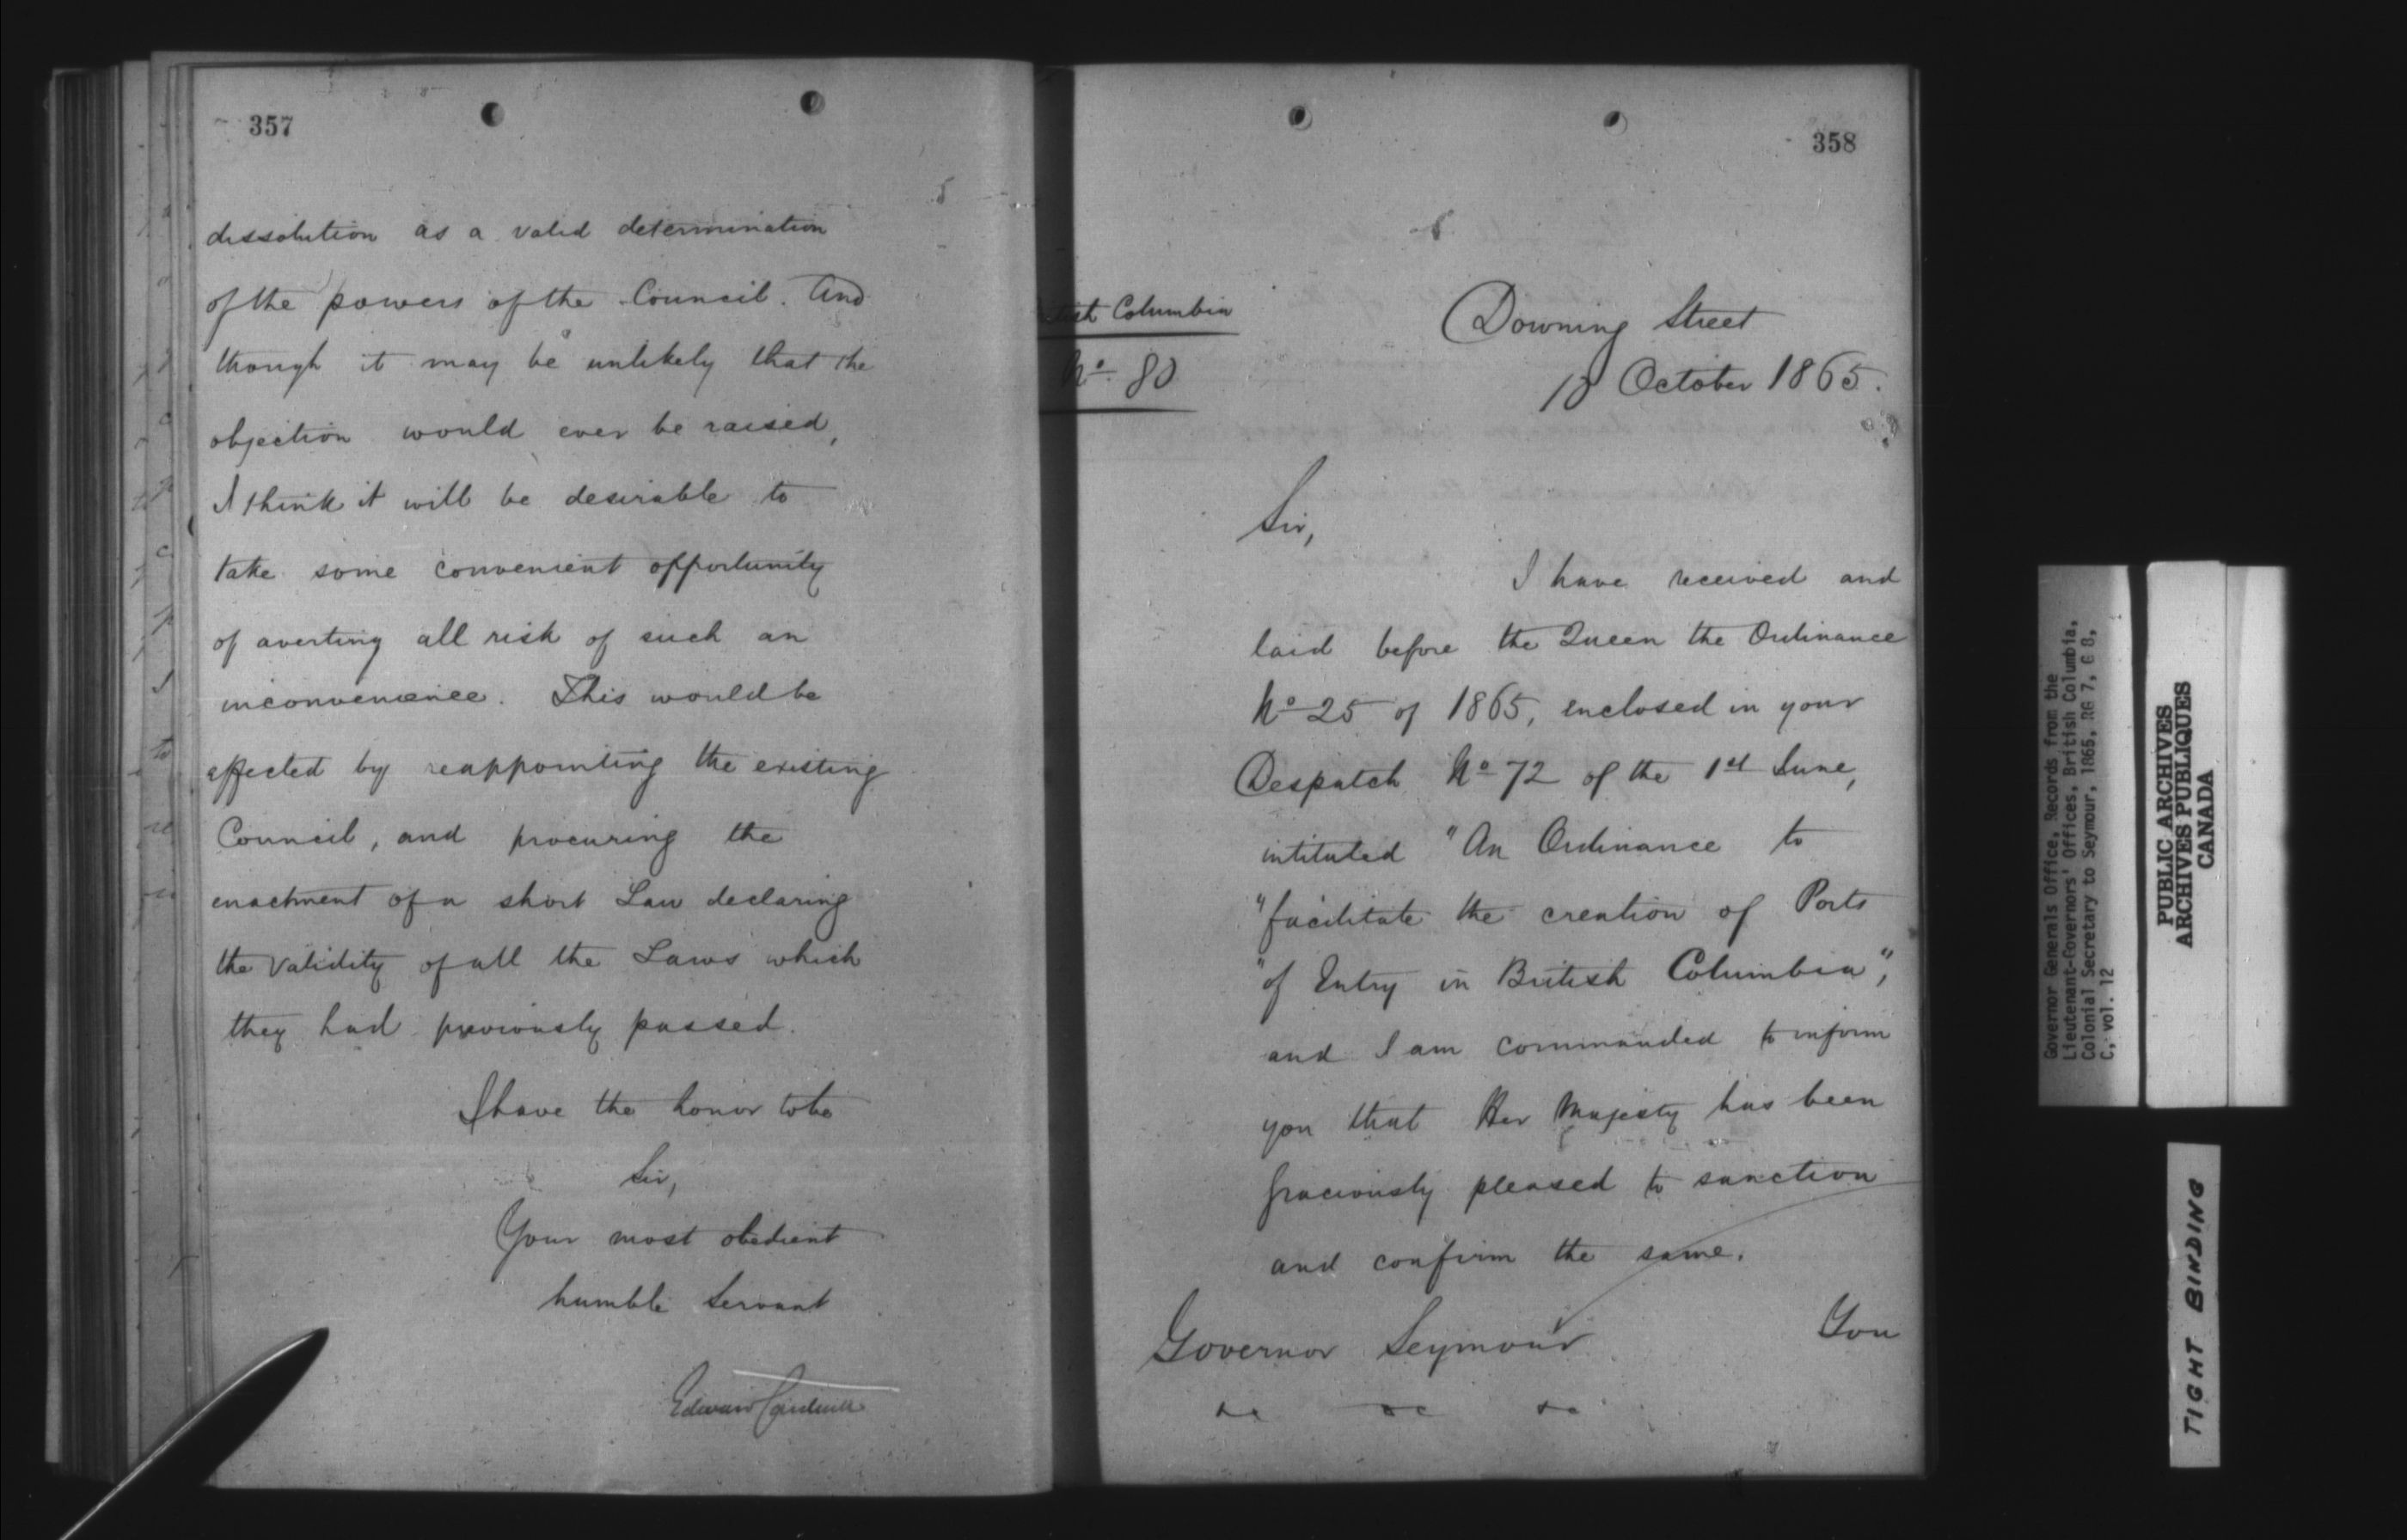 357
dissolution as a valid determination
of the powers of the Council. And
though it may be unlikely that the
objection would ever be raised,
I think it will be desirable to
take some convenient opportunity
of averting all risk of such an
inconvenience. This would be
effected by reappointing the existing
Council, and procuring the
enactment of a short Law declaring
the validity of all the Laws which
they had previously passed.
I have the honor to be
Sir,
Your most obedient
humble Servant
Edward Cardwell
358
Columbia
No. 80
Downing Street
October 1865.
Sir,
I have received and
laid before the Queen the Ordinance
No 25 of 1865, enclosed in your
Despatch No 72 of the 1st June,
intituled "An Ordinance to
"facilitate the creation of Ports
"of Entry in British Columbia",
and I am commanded to inform
you that Her Majesty has been
graciously pleased to sanction
and confirm the same.
Governor Seymour
You
Governor Generals Office, Records from the
Lieutenant-Governors' Offices, British Columbia,
Colonial Secretary to Seymour, 1865, RG 7, G 8,
C, vol. 12
PUBLIC ARCHIVES
ARCHIVES PUBLIQUES
CANADA
TIGHT BINDING